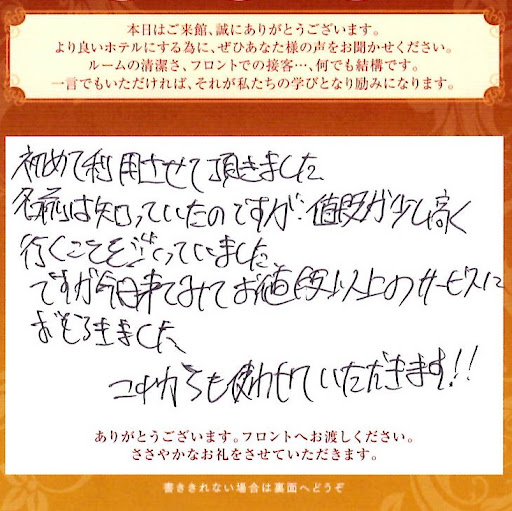 本日はご来館、誠にありがとうございます。
より良いホテルにする為に、ぜひあなた様の声をお聞かせください。
ルームの清潔さ、フロントでの接客…、何でも結構です。
一言でもいただければ、それが私たちの学びとなり励みになります。
初めて利用させて頂きました
名前は知っていたのですが、値段が少し高く
行くことを迷っていました。
ですが今日来てみてお値段以上のサービスに
おどろきました
これからも使わせていただきます!!
ありがとうございます。フロントへお渡しください。
ささやかなお礼をさせていただきます。
書ききれない場合は裏面へどうぞ